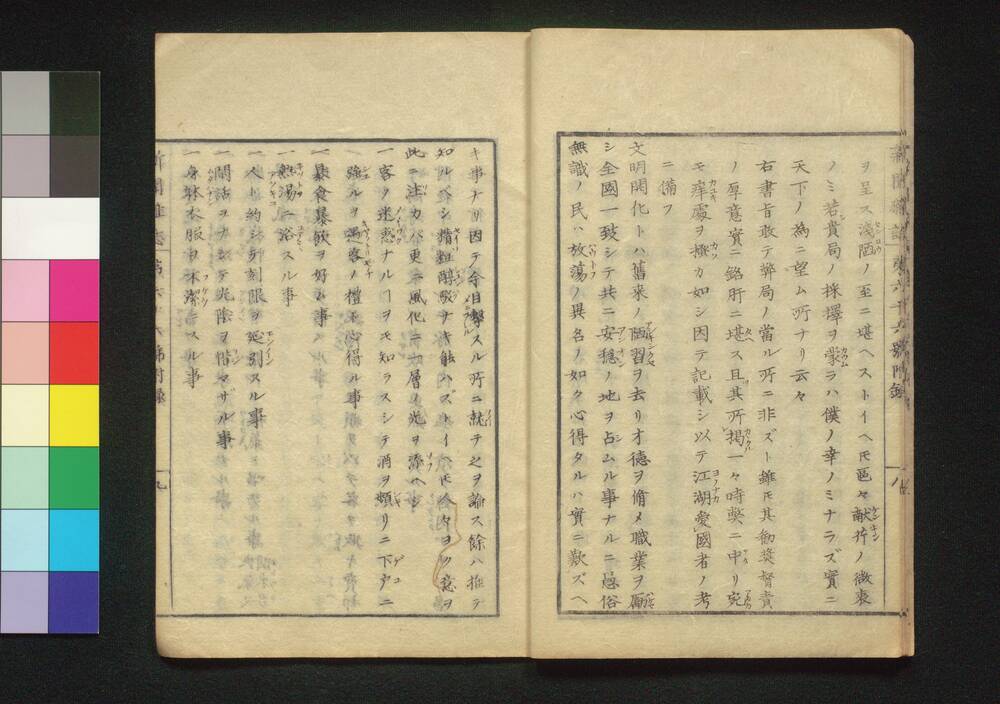 ヲ呈ス淺陋ノ至ニ堪ヘストイヘ𪜈區々献芹ノ微衷
ノミ若貴局ノ採擇ヲ蒙ラハ僕ノ幸ノミナラズ實ニ
天下ノ為ニ望ム所ナリ云々
右書旨敢テ弊局ノ當ル所ニ非ズト雖𪜈其勧奨督責
ノ厚意實ニ銘肝ニ堪ス且其所掲一々時弊ニ中リ宛
モ痒處ヲ掻カ如シ因テ記載シ以テ江湖愛國者ノ考
ニ備フ
文明開化トハ舊来ノ陋習ヲ去リ才德ヲ脩メ職業ヲ勵
シ全國一致シテ共ニ安穏ノ地ヲ占ムル事ナルニ愚俗
無識ノ民ハ放蕩ノ異名ノ如ク心得タルハ實ニ歎ズヘ
新聞雜誌 第六十六號附録 八
キ事ナリ因テ今目撃スル所ニ就テ之ヲ論ス餘ハ推テ
知ルベシ精粗醇駁ヲ待能ハズトイヘ𪜈冷々ヨク意ヲ
此ニ注カバ更ニ風化ニ一層ノ光ヲ添ヘシ
一 客ノ迷惑ナルヿヲモ知ラスシテ酒ヲ頻リニ下戸ニ
強ルヲ遇客ノ禮ト心得ル事
一 暴食暴飲ヲ好ム事
一 熱湯ニ浴スル事
一 人ト約シ時刻限ヲ延引スル事
一 閒話ヲナシテ光陰ヲ惜マザル事
一 身躰衣服ヲ不潔ニスル事
新聞雜誌 第六十六號附録 九